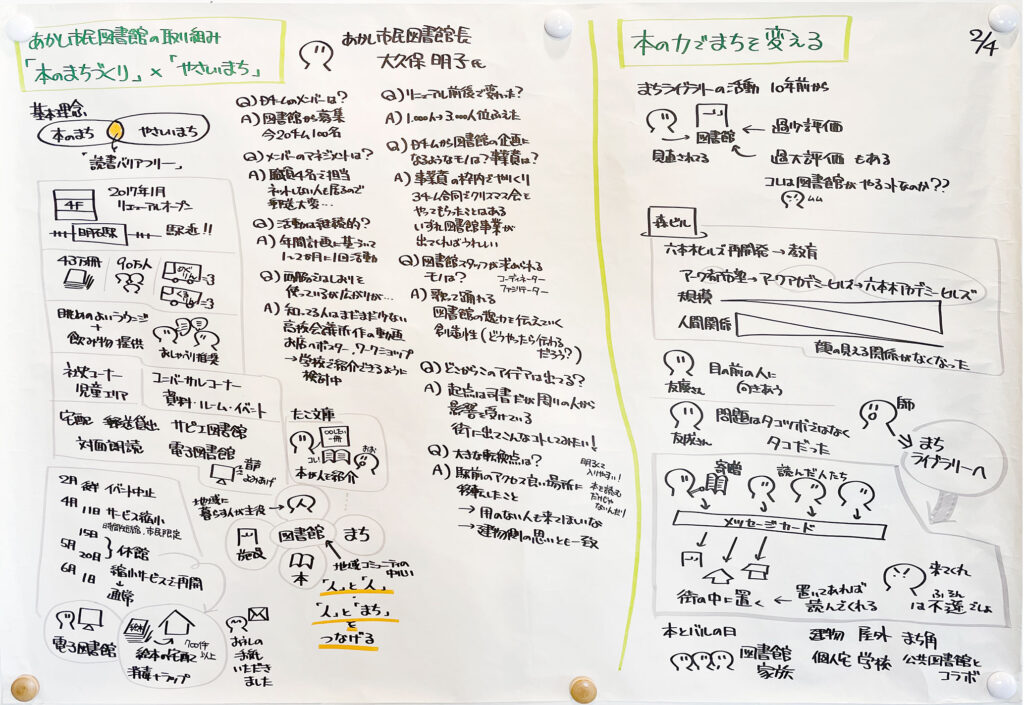 あかし市民図書館の取り組み
「本のまちづくり」×「やさしいまち」
あかし市民図書館長
大久保 明子氏
基本理念
本のまち
やさしいまち
「読書バリアフリー」
4F
2017年1月
リニューアルオープン
明石駅
駅近!!
43万冊
90万人
眺めのよいラウンジ
+
飲み物提供
おしゃべり推奨
幼児コーナー
児童エリア
ユニバーサルコーナー
資料・ルーム・イベント
宅配
郵送貸出
サピエ図書館
対面朗読
電子図書館
音声
よみあげ
2月
イベント中止
4月
11日 サービス縮小
時間短縮、市民限定
15日
5月
20日
休館
6月
1日
縮小サービスで再開
通常
電子図書館
絵本
絵本の宅配
700件
以上
消毒+ラップ
お礼の
手紙
いただき
ました
Q)Dチームのメンバーは?
A)図書館から募集
今20チーム100名
Q)メンバーのマネジメントは?
A)職員4名で担当
ネットしない人も居るので
郵送大変…
Q)活動は継続的?
A)年間計画に基づいて
1〜2か月に1回活動
使っているが広がりが…
A)知ってる人はまだまだ少ない
お店へポスター、ワークショップ
→学校で紹介できるように
検討中
たこ文庫
コレ!
一冊
本が人を紹介
地域に
暮らす人が主役
施設
図書館
まち
本
地域コミュニティの
中心い
「人」と「人」
「人」と「まち」
を
つなげる
Q)リニューアル前後で変わった?
A)1.000人→3.000人位ふえた
Q)Dチームから図書館の企画に
なるようなモノは?事業費は?
A)事業費の枠内でやりくり
3チーム合同でクリスマス会を
やってもらったことはある
いずれ図書館事業が
出てくればうれしい
Q)図書館スタッフが求められる
モノは?
コーディネーター
ファシリテーター
A)歌って踊れる
図書館の魅力を伝えていく
創造性(どうやったら伝わる
だろう?)
Q)どこからこのアイデアは出てる?
A)起点は司書だが周りの人から
影響を受けている
街に出てこんなコトしてみたい!
Q)大きな転換点は?
A)駅前のアクセス良い場所に
移転したこと
→用のない人も来てほしいな
→建物側の思いとも一致
明るくて
入りやすい!
本を読む
だけじゃ
ないんだ!!
本の力でまちを変える
2/4
まちライブラリーの活動 10年前から
図書館
見直される
過少評価
過大評価 もある
コレは図書館がやるコトなのか??
ムム
森ビル
六本木ヒルズ再開発→教育
アーク都市塾→アークアカデミーヒルズ→六本木アカデミーヒルズ
規模
人間関係
顔の見える関係がなくなった
友廣さん
目の前の人に
向きあう
友廣さん
問題はタコツボではなく
タコだった
師
まち
ライブラリーへ
寄贈
読んだ人たち
メッセージカード
街の中に置く
置いてあれば
読んでくれる
来てくれ
は不遜でしょ
本とバルの日
図書館
家族
建物 屋外 まち角
個人宅 学校 公共図書館と
コラボ